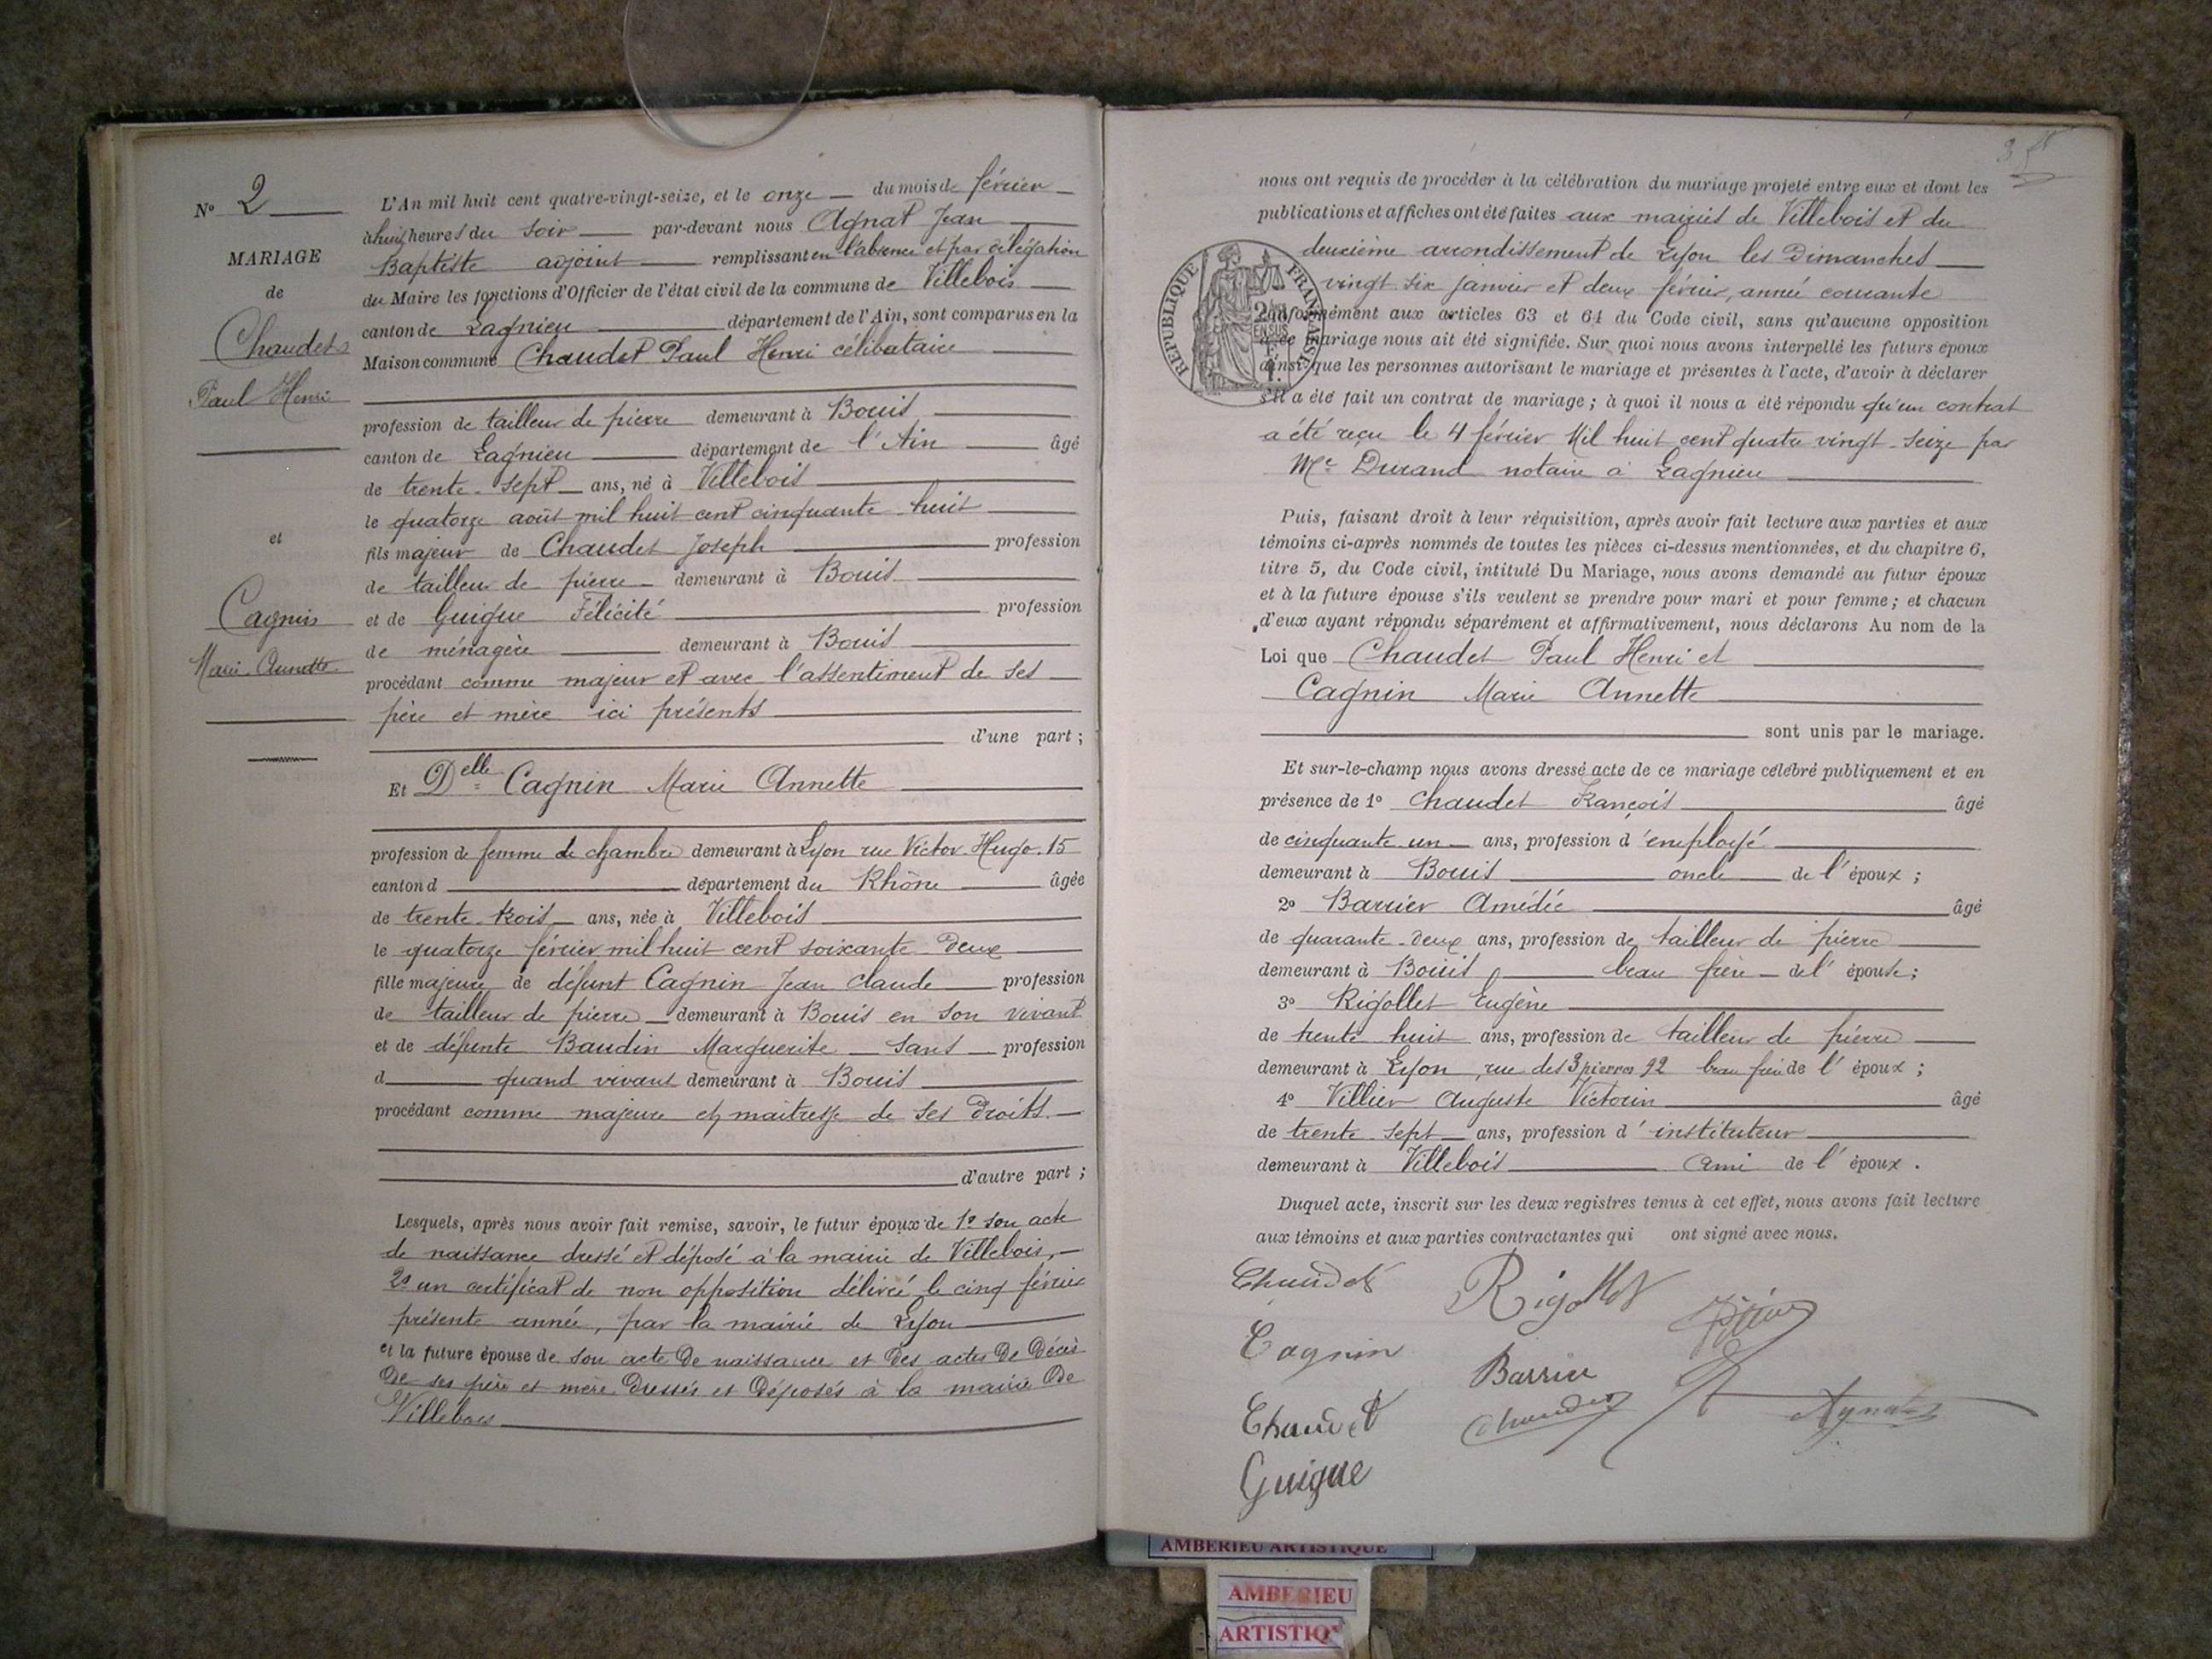 N° 2
MARIAGE
de
Chaudet
Paul Henri
et
Cagnin
Marie Annette
L'An mil huit cent quatre-vingt-seize, et le onze du mois de février
à huit heures du soir par-devant nous Agnat Jean
Baptiste adjoint remplissant en l'absence et par délégation
du Maire les fonctions d'Officier de l'état civil de la commune de Villebois
canton de Lagnieu département de l'Ain, sont comparus en la
Maison commune Chaudet Paul Henri célibataire
profession de tailleur de pierre demeurant à Bouis
canton de Lagnieu département de l'Ain âgé
de trente-sept ans, né à Villebois
le quatorze août mil huit cent cinquante-huit
fils majeur de Chaudet Joseph profession
de tailleur de pierre demeurant à Bouis
et de Guigue Félicité profession
de ménagère demeurant à Bouis
procédant comme majeur et avec l'assentiment de ses
père et mère ici présents
d'une part ;
Et Delle Cagnin Marie Annette
profession de femme de chambre demeurant à Lyon rue Victor-Hugo. 15
canton d département du Rhône âgée
de trente-trois ans, née à Villebois
le quatorze février mil huit cent soixante-deux
fille majeure de défunt Cagnin Jean Claude profession
de tailleur de pierre demeurant à Bouis en son vivant
et de défunte Baudin Marguerite sans profession
d quand vivant demeurant à Bouis
procédant comme majeure et maîtresse de ses droits
d'autre part ;
Lesquels, après nous avoir fait remise, savoir, le futur époux de 1° son acte
de naissance dressé et déposé à la mairie de Villebois,
2° un certificat de non opposition délivré le cinq février
présente année, par la mairie de Lyon
et la future épouse de son acte de naissance et des actes de décès
de ses père et mère dressés et déposés à la mairie de
Villebois
nous ont requis de procéder à la célébration du mariage projeté entre eux et dont les
publications et affiches ont été faites aux mairies de Villebois et du
deuxième arrondissement de Lyon les Dimanches
vingt-six janvier et deux février, année courante
RÉPUBLIQUE FRANÇAISE
conformément aux articles 63 et 64 du Code civil, sans qu'aucune opposition
à ce mariage nous ait été signifiée. Sur quoi nous avons interpellé les futurs époux
ainsi que les personnes autorisant le mariage et présentes à l'acte, d'avoir à déclarer
s'il a été fait un contrat de mariage ; à quoi il nous a été répondu qu'un contrat
a été reçu le 4 février Mil huit cent quatre vingt-seize par
Me Durand notaire à Lagnieu
Puis, faisant droit à leur réquisition, après avoir fait lecture aux parties et aux
témoins ci-après nommés de toutes les pièces ci-dessus mentionnées, et du chapitre 6,
titre 5, du Code civil, intitulé Du Mariage, nous avons demandé au futur époux
et à la future épouse s'ils veulent se prendre pour mari et pour femme ; et chacun
d'eux ayant répondu séparément et affirmativement, nous déclarons Au nom de la
Loi que Chaudet Paul Henri et
Cagnin Marie Annette
sont unis par le mariage.
Et sur-le-champ nous avons dressé acte de ce mariage célébré publiquement et en
présence de 1° Chaudet François âgé
de cinquante-un ans, profession d'employé
demeurant à Bouis oncle de l'époux ;
2° Barrier Amédée âgé
de quarante-deux ans, profession de tailleur de pierre
demeurant à Bouis beau frère de l'épouse ;
3° Rigollet Eugène
de trente huit ans, profession de tailleur de pierre
demeurant à Lyon, rue des 3 pierres 92 beau frère de l'époux ;
4° Villier Auguste Victorin âgé
de trente-sept ans, profession d'instituteur
demeurant à Villebois ami de l'époux.
Duquel acte, inscrit sur les deux registres tenus à cet effet, nous avons fait lecture
aux témoins et aux parties contractantes qui ont signé avec nous.
Chaudet Rigollet
Cagnin Barrier
Chaudet Chaudet Agnat
Guigue
AMBERIEU ARTISTIQUE
AMBERIEU
ARTISTIQ